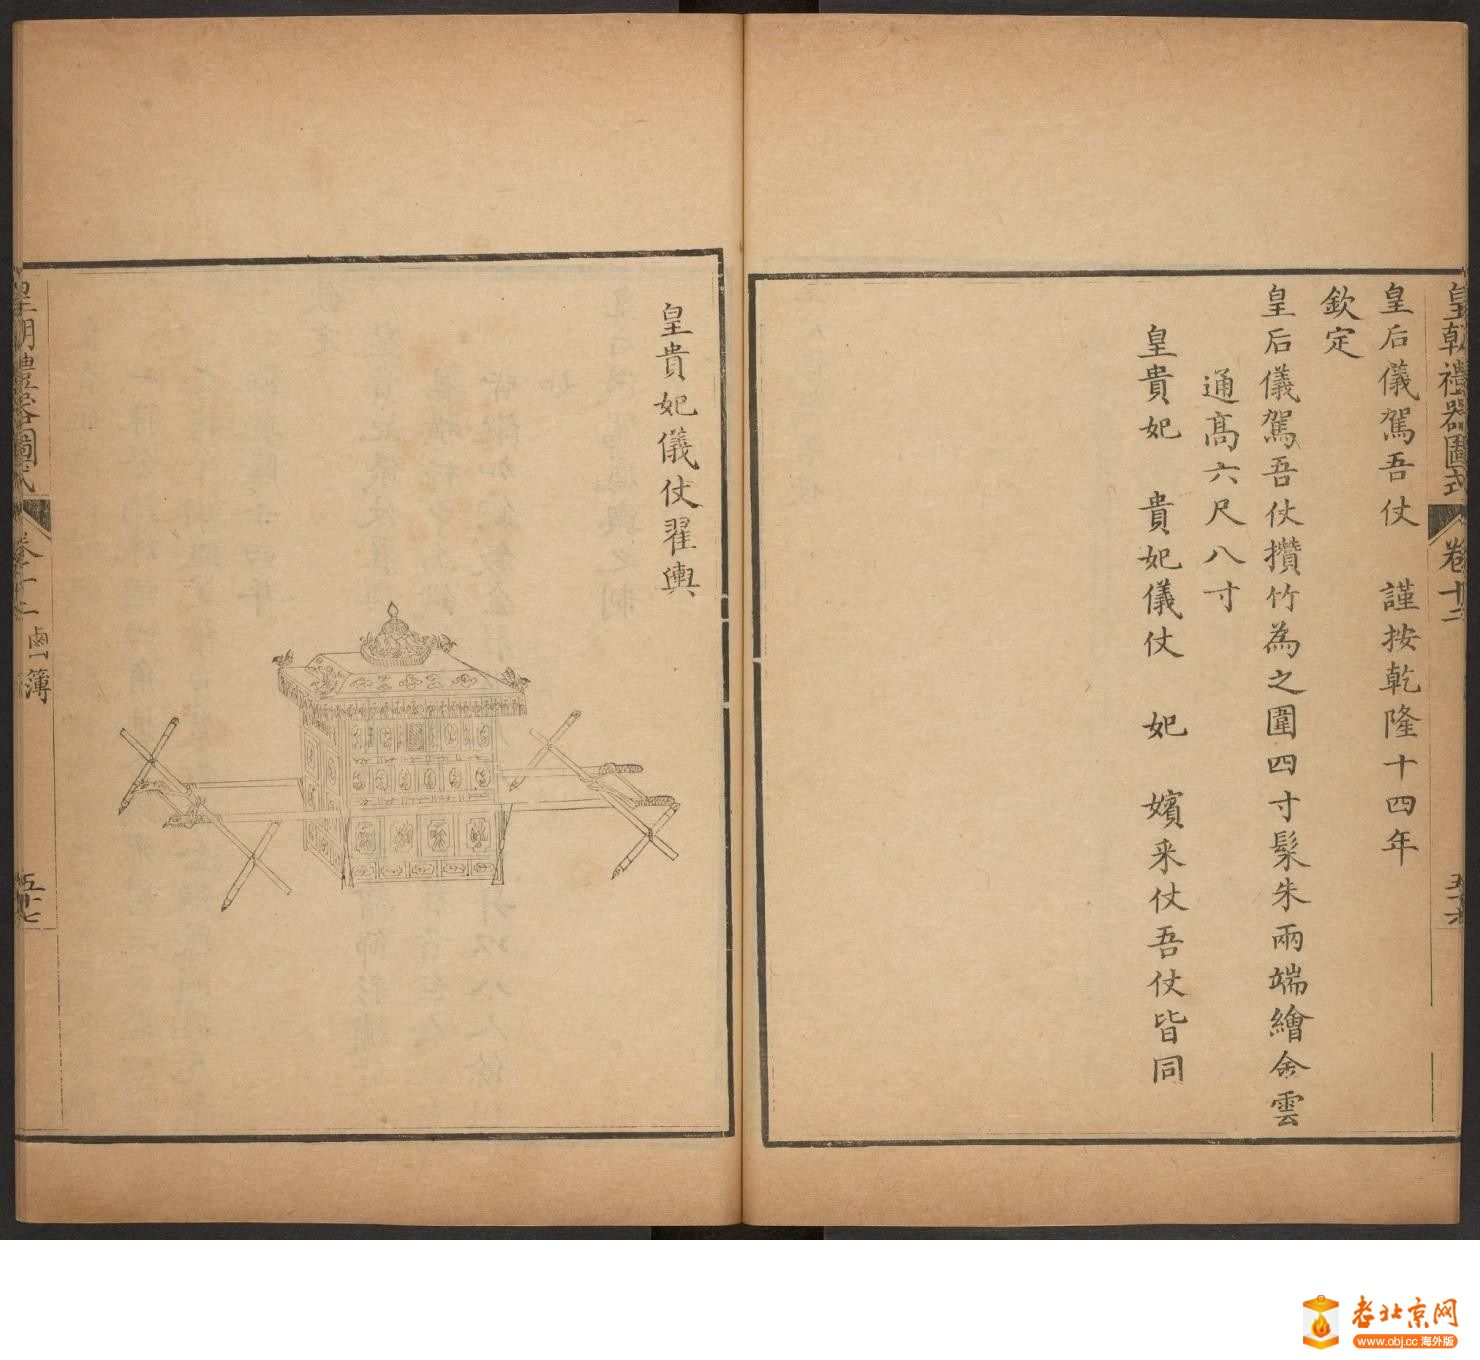 皇朝禮器圖式 卷十二 五十六
皇后儀駕吾仗 謹按乾隆十四年
欽定
皇后儀駕吾仗攢竹為之圍四寸髹朱兩端繪金雲
通高六尺八寸
皇貴妃 貴妃儀仗 妃 嬪采仗吾仗皆同
皇貴妃儀仗翟輿
皇朝禮器圖式 卷十二 鹵簿 五十七
老北京网
www.obj.cc 海外版